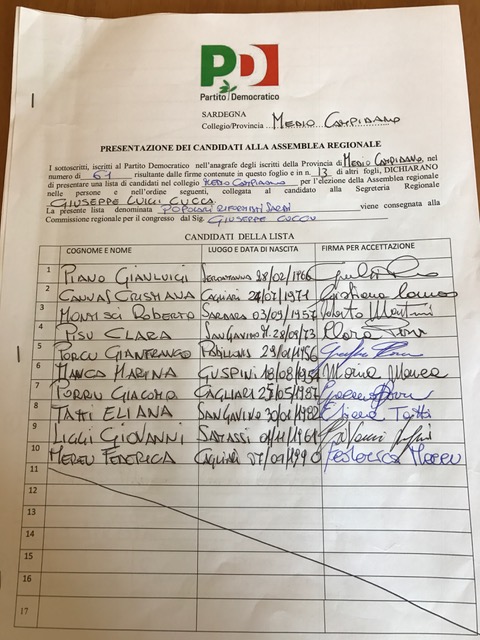 PD
Partito Democratico
SARDEGNA
Collegio/Provincia MEDIO CAMPIDANO
PRESENTAZIONE DEI CANDIDATI ALLA ASSEMBLEA REGIONALE
I sottoscritti, iscritti al Partito Democratico nell'anagrafe degli iscritti della Provincia di MEDIO CAMPIDANO, nel
numero di 61 risultante dalle firme contenute in questo foglio e in n. 13 di altri fogli, DICHIARANO
di presentare una lista di candidati nel collegio MEDIO CAMPIDANO per l'elezione della Assemblea regionale
nelle persone e nell'ordine seguenti, collegata al candidato alla Segreteria Regionale
GIUSEPPE LUIGI CUCCA
La presente lista denominata POPOLARI RIFORMISTI SARDI viene consegnata alla
Commissione regionale per il congresso dal Sig. GIUSEPPE
CANDIDATI DELLA LISTA
COGNOME E NOME LUOGO E DATA DI NASCITA FIRMA PER ACCETTAZIONE
1 PIANO GIANLUIGI 28/02/1966
2 CANNAS CRISTIANA CAGLIARI 24/07/1971 Cristiana Cannas
3 MONTISCI ROBERTO SARDARA 03/09/1957
4 PISU CLARA SAN GAVINO M. 28/09/73 Clara Pisu
5 PORCU GIANFRANCO 29/01/1956
6 MANCA MARINA GUSPINI 18/08/1954 Marina Manca
7 PORRU GIACOMO CAGLIARI 25/05/1987
8 TATTI ELIANA SAN GAVINO 30/01/1982 Eliana Tatti
9 LIGGI GIOVANNI SAMASSI 01/11/1961
10 MEREU FEDERICA CAGLIARI 07/09/1990 Federica Mereu
11
12
13
14
15
16
17